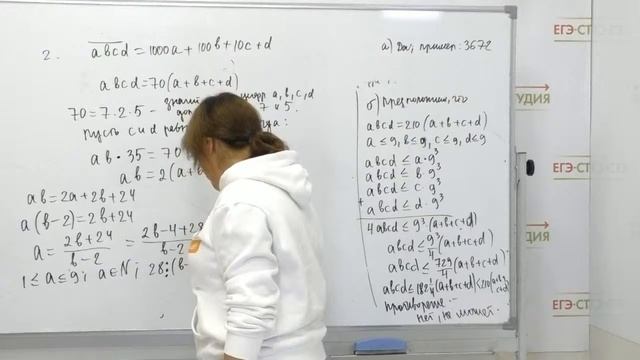 2. abcd = 1000a + 100b + 10c + d
abcd = 70(a+b+c+d)
70 = 7·2·5 -
цифр a, b, c, d
7 и 5.
пусть c и d
ab·35 = 70
ab = 2(a+
ab = 2a+2b+24
a(b-2) = 2b+24
a = (2b+24)/(b-2) = (2b-4+28)/(b-2)
1 ≤ a ≤ 9; a∈N; 28⋮(b-
а) Да, пример: 3672
б) Предположим, что
abcd = 210(a+b+c+d)
a ≤ 9, b ≤ 9, c ≤ 9, d ≤ 9
abcd ≤ a·9³
abcd ≤ b·9³
abcd ≤ c·9³
+ abcd ≤ d·9³
4abcd ≤ 9³·(a+b+c+d)
abcd ≤ 9³/4 (a+b+c+d)
abcd ≤ 729/4 (a+b+c+d)
abcd ≤ 182 1/4 (a+b+c+d) < 210(a+b+c+d)
противореч. -
нет, не может. -
ЕГЭ-СТУДИЯ
УДИЯ
ЕГЭ-СТ
ЕГЭ-СТ
УДИЯ
ЕГЭ-СТ